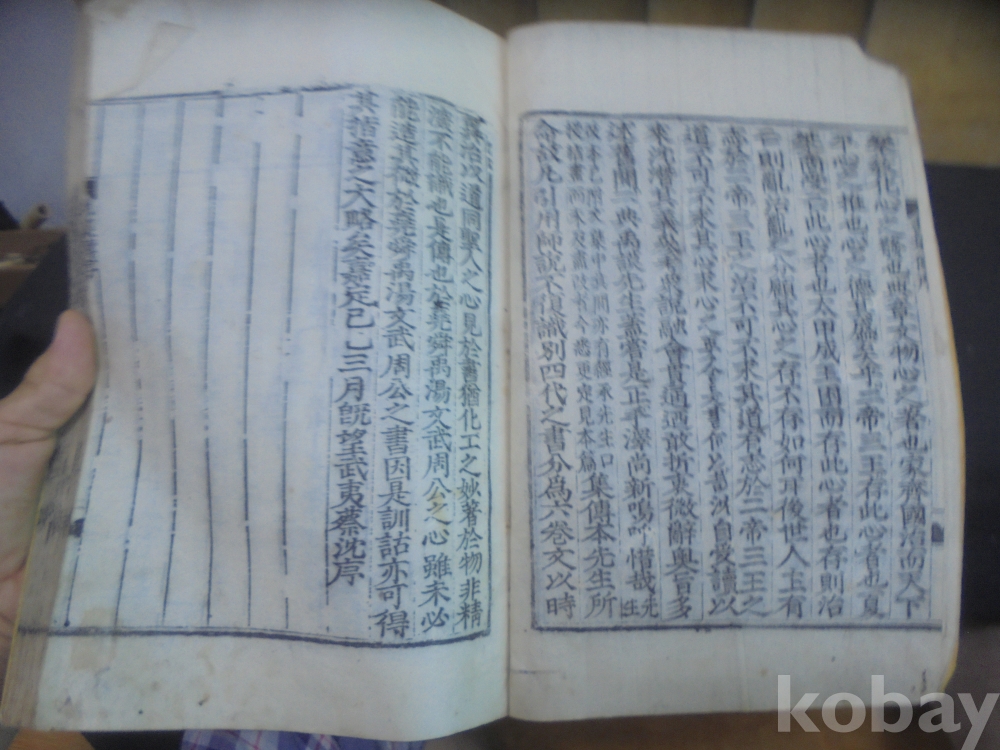 樂敎化心之發也典章文物心之著也家齊國治而天下
平心之推也心之德其盛矣乎二帝三王存此心者也夏
桀商受亡此心者也太甲成王困而存此心者也存則治
亡則亂治亂之分顧其心之存不存如何耳後世人主有
志於二帝三王之治不可不求其道有志於二帝三王之
道不可不求其心求心之要舍是書何以哉沈自受讀以
來沈潛其義參考衆說融會貫通迺敢折衷微辭奧旨多
述舊聞二典禹謨先生蓋嘗是正手澤尚新嗚呼惜哉先生
改本已附文集中其間亦有經承先生口授指畫而未及盡改者今悉更定見本篇集傳本先生所
命故凡引用師說不復識別四代之書分爲六卷文以時
異治以道同聖人之心見於書猶化工之妙著於物非精
深不能識也是傳也於堯舜禹湯文武周公之心雖未必
能造其微於堯舜禹湯文武周公之書因是訓詁亦可得
其指意之大略矣嘉定己巳三月旣望武夷蔡沈序
kobay